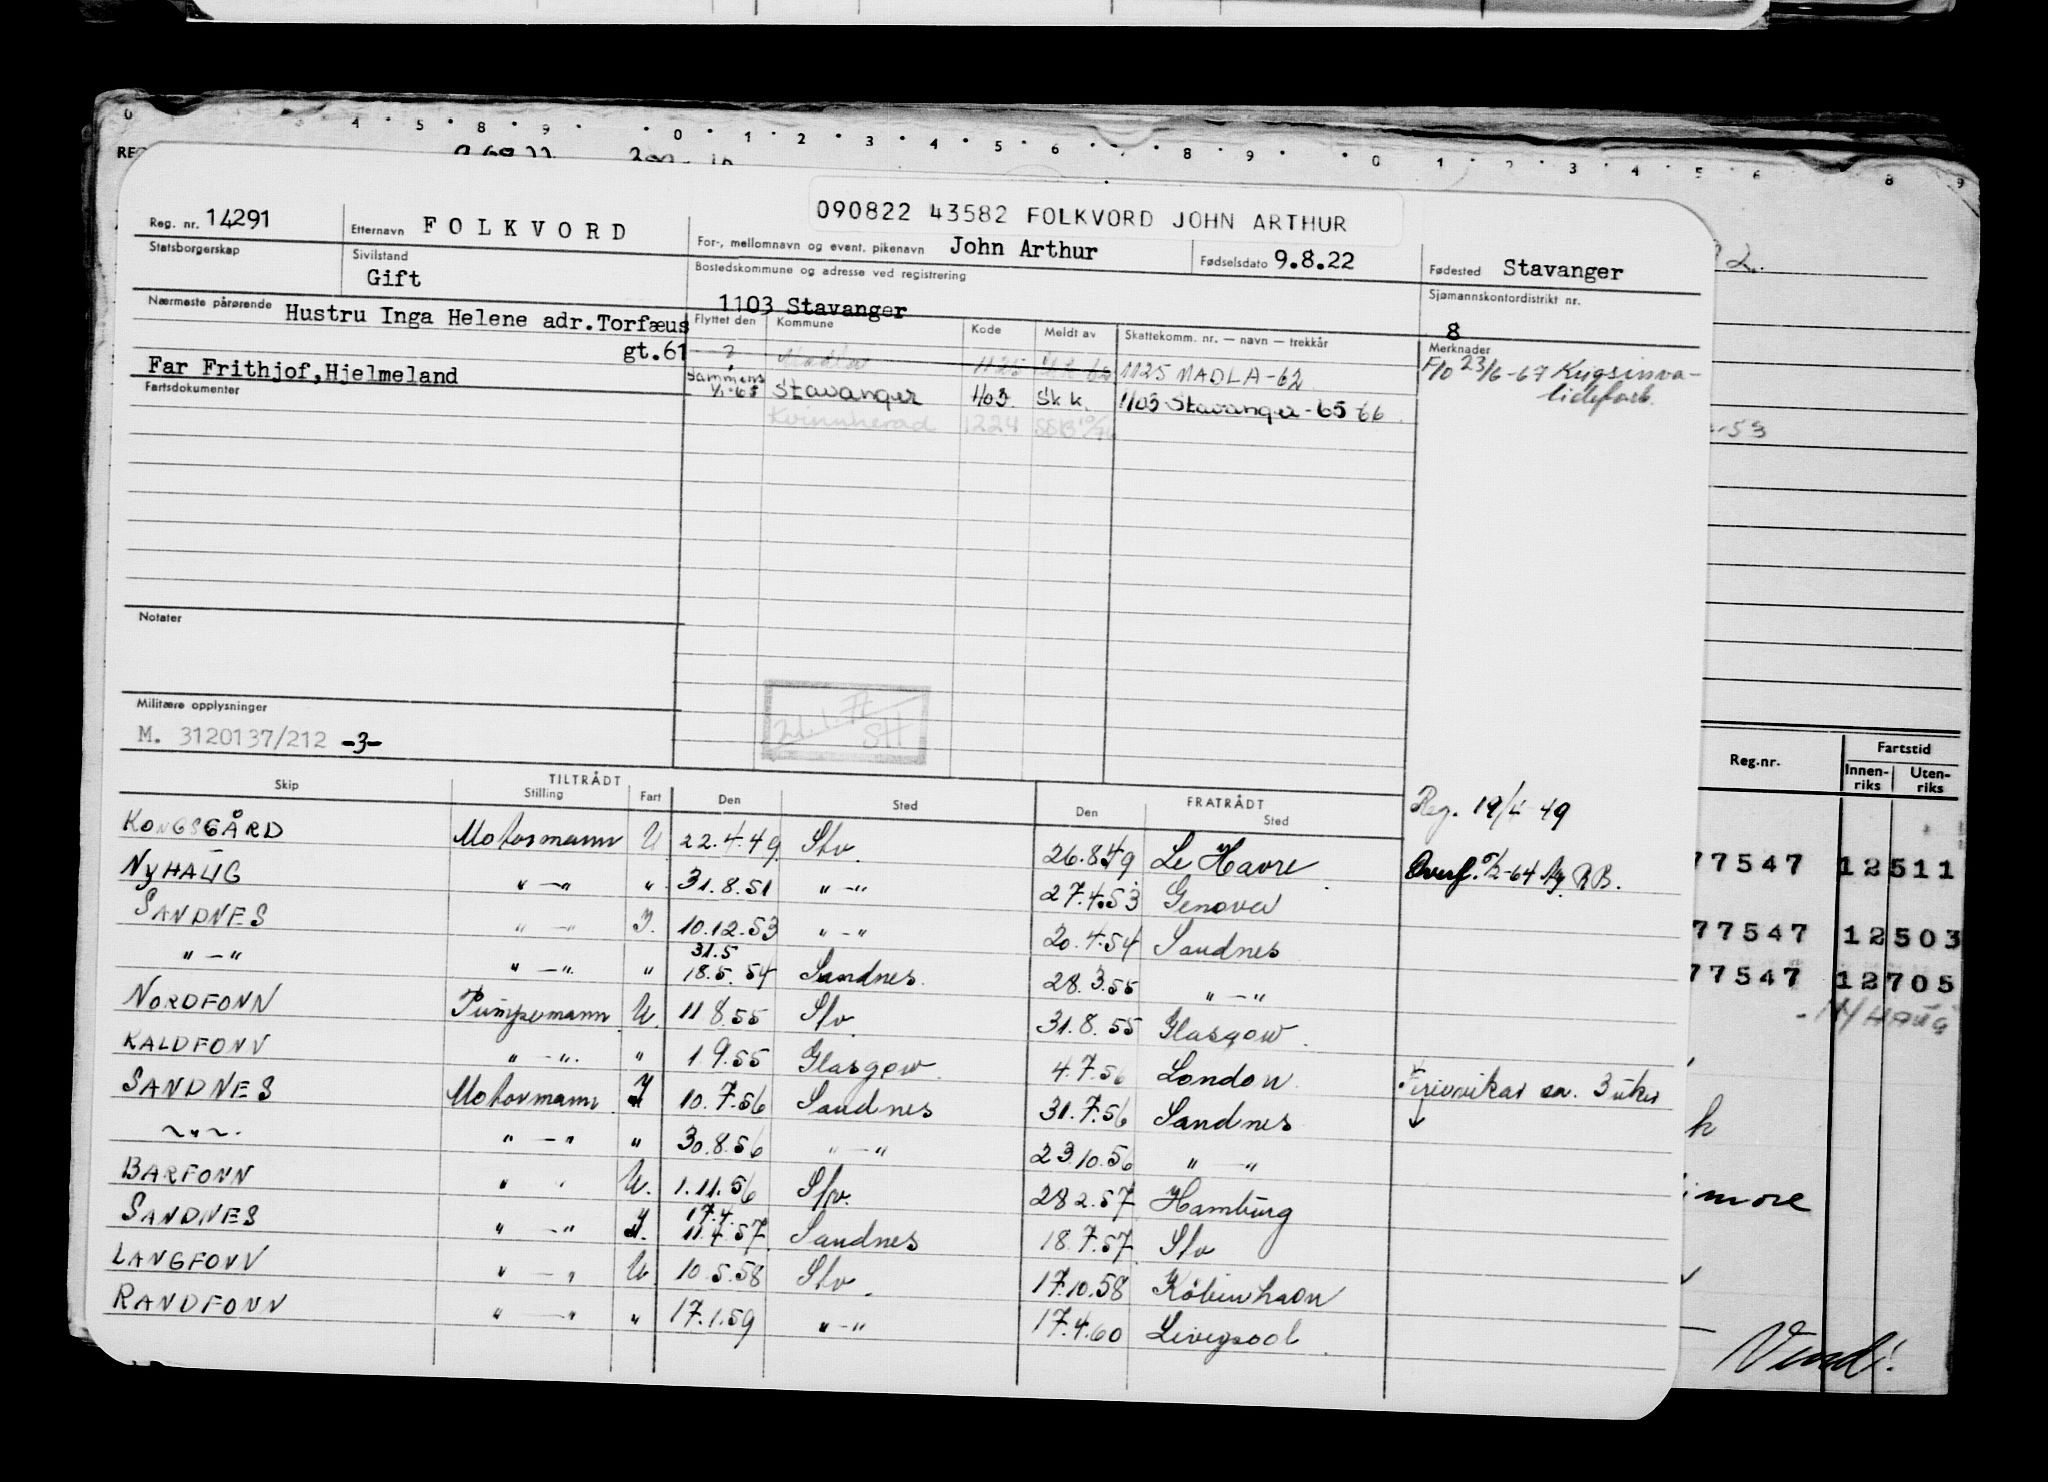 0 4 5 8 9 0 1 2 3 4 5 6 7 8 9 0 1 2 3 4 5 6 8 9
090822 43582 FOLKVORD JOHN ARTHUR
Reg. nr. 14291 Etternavn FOLKVORD For-, mellomnavn og event. pikenavn John Arthur Fødselsdato 9.8.22 Fødested Stavanger
Statsborgerskap Sivilstand Gift Bostedskommune og adresse ved registrering 1103 Stavanger Sjømannskontordistrikt nr. 8
Nærmeste pårørende Hustru Inga Helene adr.Torfæus
gt.61
Far Frithjof,Hjelmeland
Flyttet den Kommune Kode Meldt av Skattekomm. nr. — navn — trekkår Merknader
? Madla 1125 1125 MADLA-62
Sammens 1/1-65 Stavanger 1103 Skk. 1103 Stavanger-65-66
Kvinnherad 1224
F/O 23/6-67 Krigsinva-
lideforb.
Fartsdokumenter
Notater
Militære opplysninger
M. 3120137/212 -3-
21.1.77
SH
TILTRÅDT FRATRÅDT
Skip Stilling Fart Den Sted Den Sted
Reg. 19/4 49
KONGSGÅRD Motormann U 22.4.49 Stv. 26.8.49 Le Havre
NYHAUG " — " " 31.8.51 " — " 27.4.53 Genova
-64 RB.
SANDNES " — " I. 10.12.53 " — " 20.4.54 Sandnes
31.5
" — " " — " " 18.5.54 Sandnes 28.3.55 " — "
NORDFONN Pumpemann U. 11.8.55 Stv 31.8.55 Glasgow
KALDFONN " — " " 1.9.55 Glasgow 4.7.56 London
SANDNES Motormann I 10.7.56 Sandnes 31.7.56 Sandnes
Ferievikar ca. 3 uker
" — " " — " " 30.8.56 " — " 23.10.56 " — "
BARFONN " " U. 1.11.56 Stv. 28.2.57 Hamburg
17.4.
SANDNES " — " I. 11.4.57 Sandnes 18.7.57 Stv
LANGFONN " — " U 10.5.58 Stv. 17.10.58 København
RANDFONN " — " " 17.1.59 " — " 17.4.60 Liverpool
Reg.nr. Fartstid
Innen-riks Uten-riks
77547 12511
77547 12503
77547 12705
NYHAUG
imore
Vend!